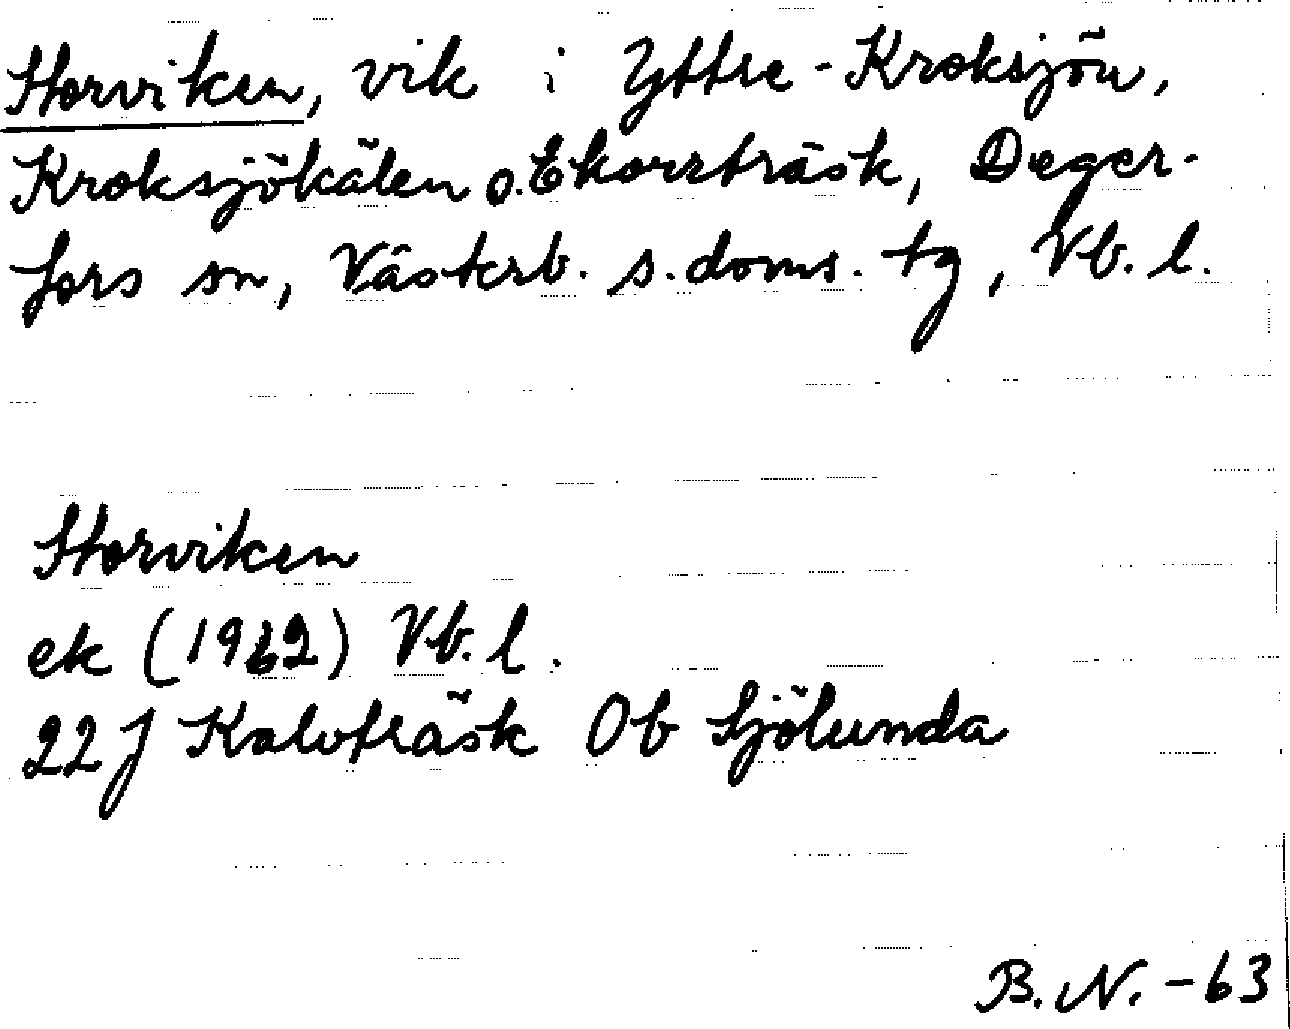 Storviken, vik i Yttre-Kroksjön,
Kroksjökälen o. Ekorrträsk, Deger-
fors sn, Västerb. s. doms. tg, Vb. l.
Storviken
ek (1962) Vb. l.
22 J Kalvträsk Ob Sjölunda
B. N. - 63